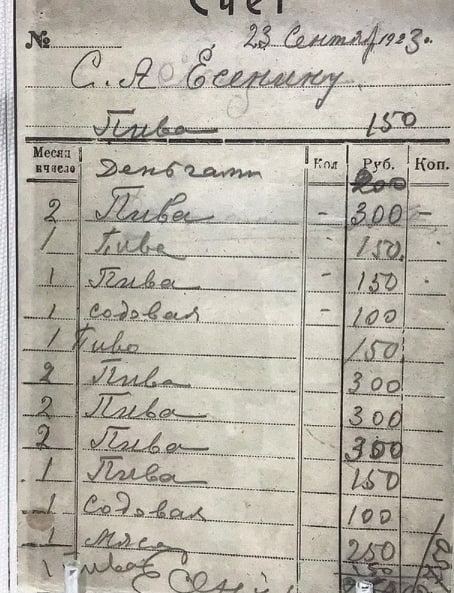 Счет
№ 23 Сентяб 1923г.
С. А Есенину
Пива 150
Месяц и число Деньгами Кол Руб. Коп.
200
2 Пива - 300 -
1 Пива 150
1 Пива - 150
1 содовая - 100
1 Пиво 150
2 Пива 300
2 Пива 300
2 Пива 300
1 Пива 150
1 Содовая 100
1 Мясо 250
1 Пива 150